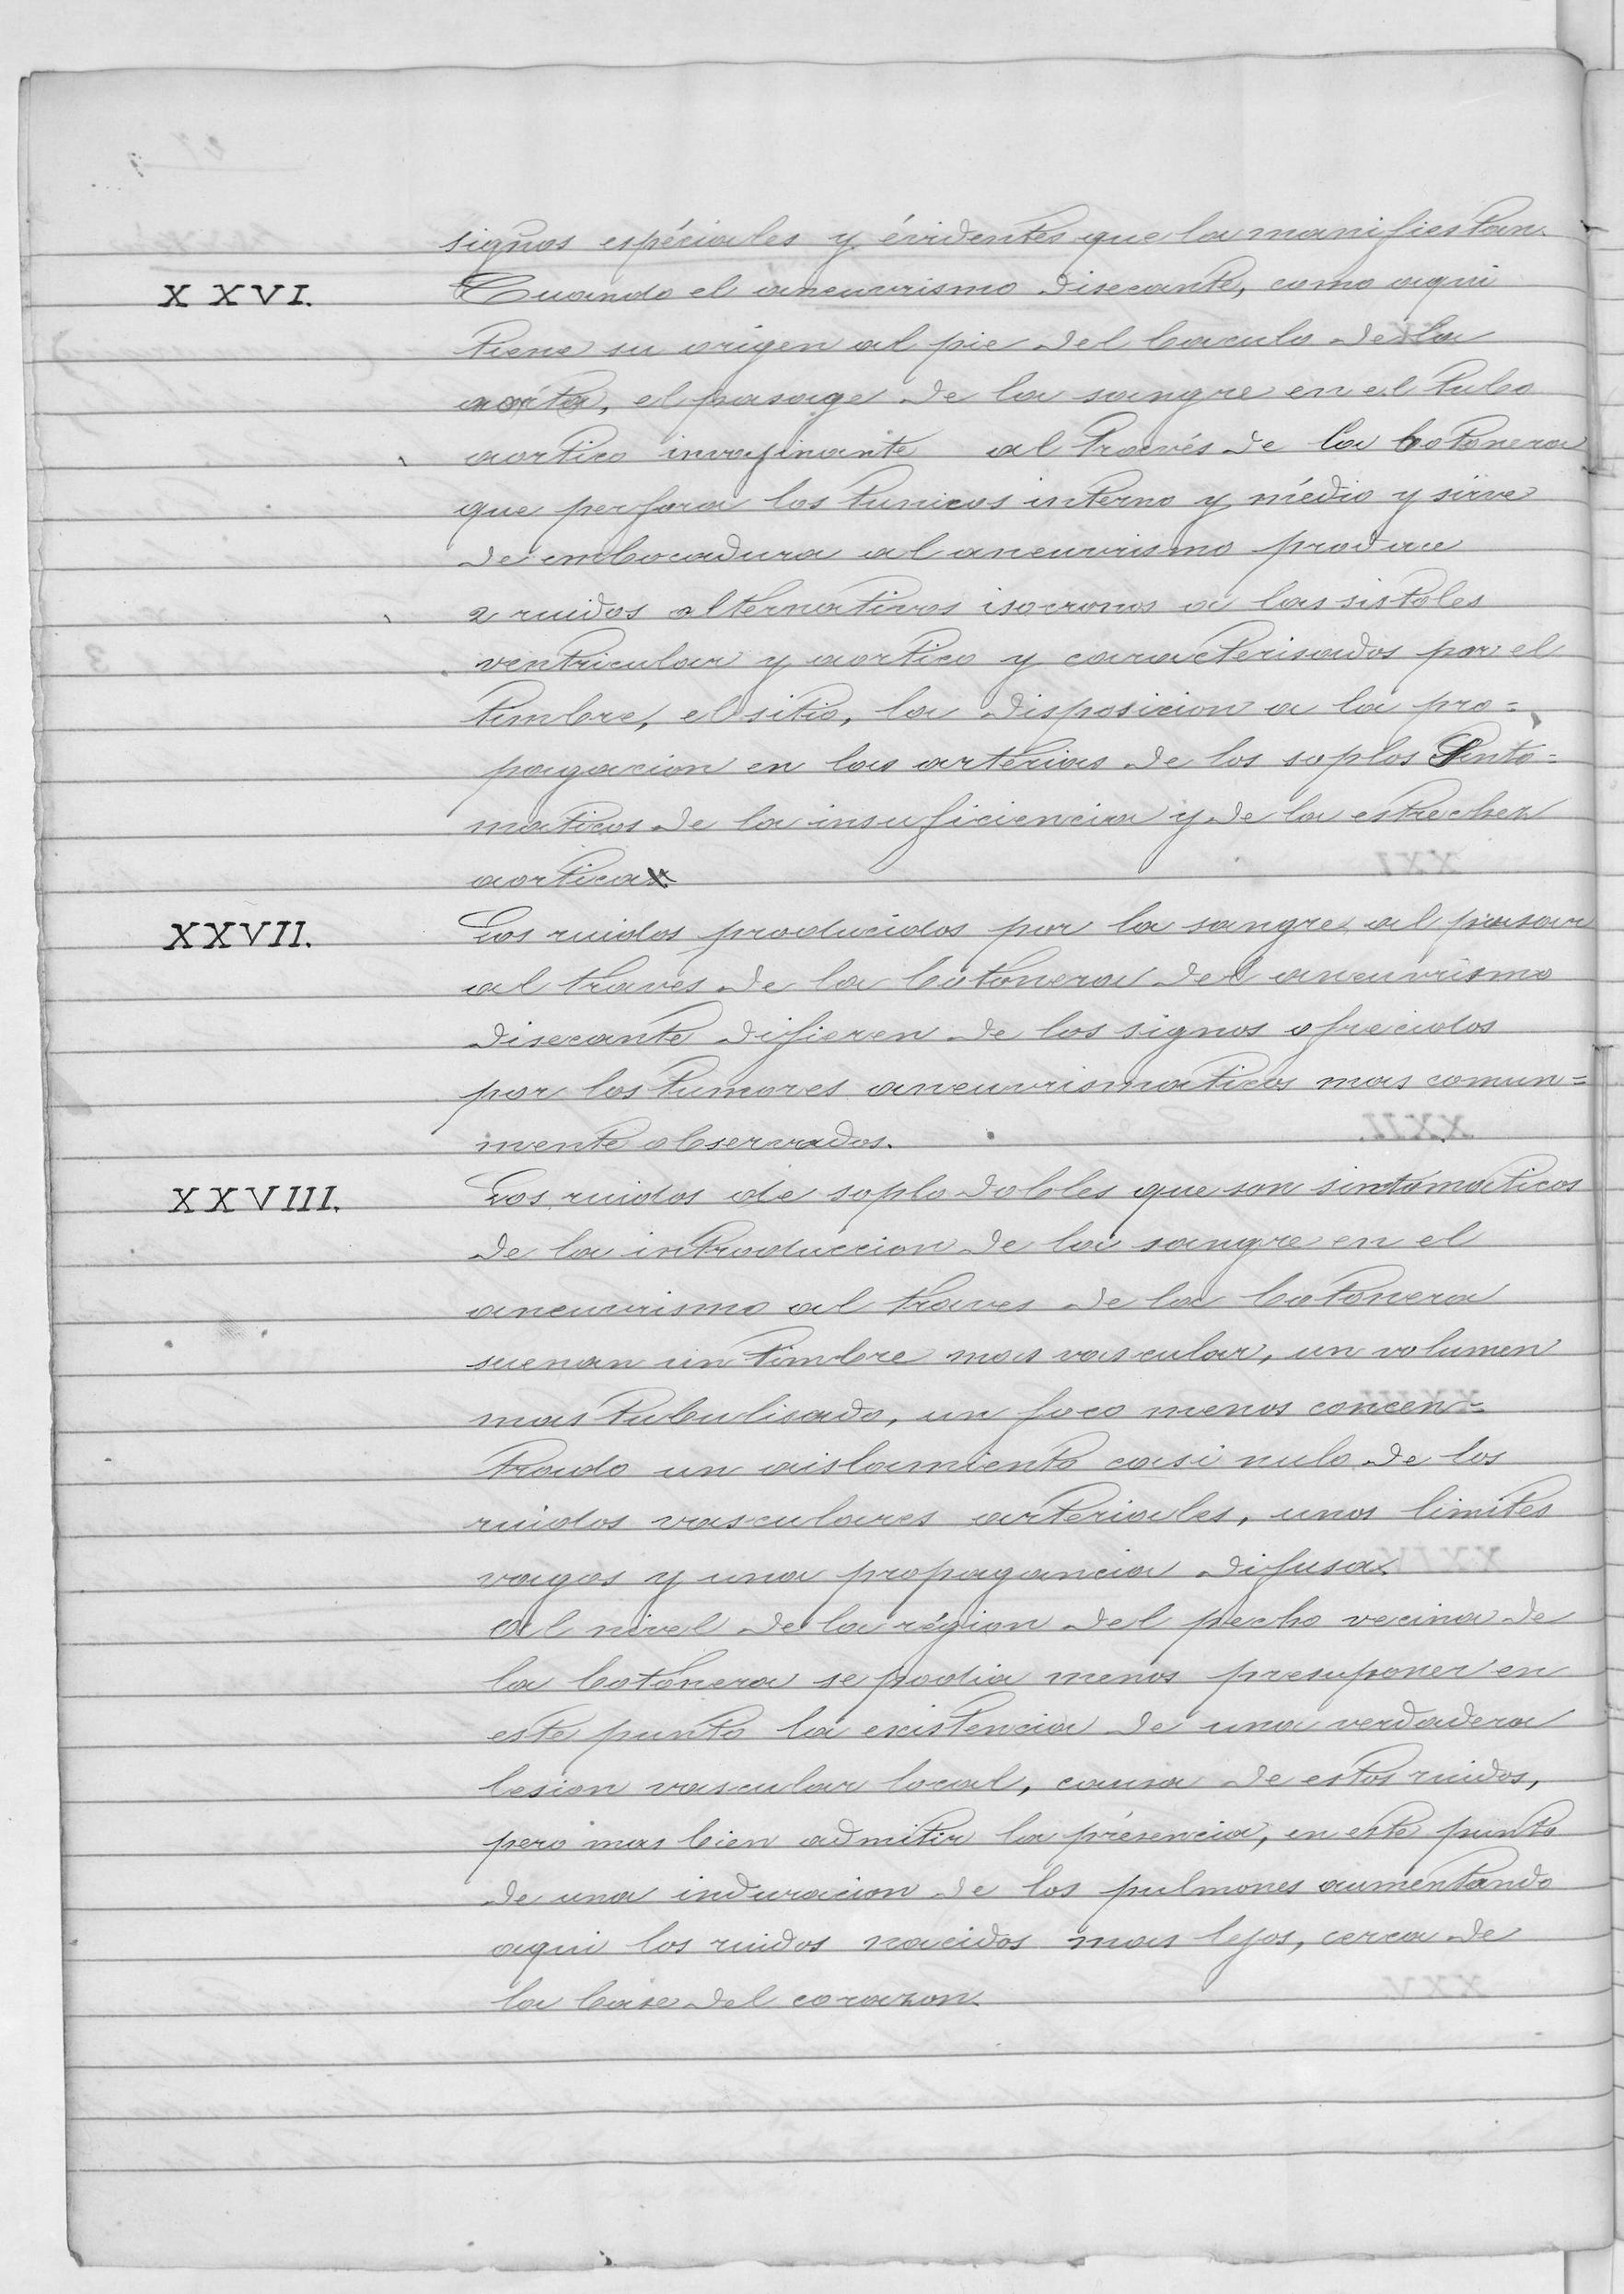 signos espéciales y évidentes que la manifiestan.
XXVI. Cuando el aneurismo disecante, como aqui
tiene su origen al pie del baculo de la
aorta, el pasage de la sangre en el tubo
aortico invaginante al través de la botonera
que perfora los tunicos interno y médio y sirve
de embocadura al aneurismo produce
2 ruidos alternativos isocronos a las sistoles
ventricular y aortico y caracterisados por el
timbre, el sitio, la disposicion a la pro=
pagacion en las artérias de los soplos Sinto=
maticos de la insuficiencia y de la estrechez
aortica
XXVII. Los ruidos producidos por la sangre al pasar
al traves de la botonera del aneurismo
disecante difieren de los signos ofrecidos
por los tumores aneurismaticos mas comun=
mente observados.
XXVIII. Los ruidos de soplo dobles que son sintomaticos
de la introduccion de la sangre en el
aneurismo al traves de la botonera
suenan un timbre mas vascular, un volumen
mas tubulisado, un foco menos concen=
trado un aislamiento casi nulo de los
ruidos vasculares arteriales, unos limites
vagos y una propagancia difusa.
Al nivel de la région del pecho vecina de
la botonera se podia menos presuponer en
este punto la existencia de una verdadera
lesion vascular local, causa de estos ruidos,
pero mas bien admitir la présencia, en este punto
de una induracion de los pulmones aumentando
aqui los ruidos nacidos mas lejos, cerca de
la base del corazon.